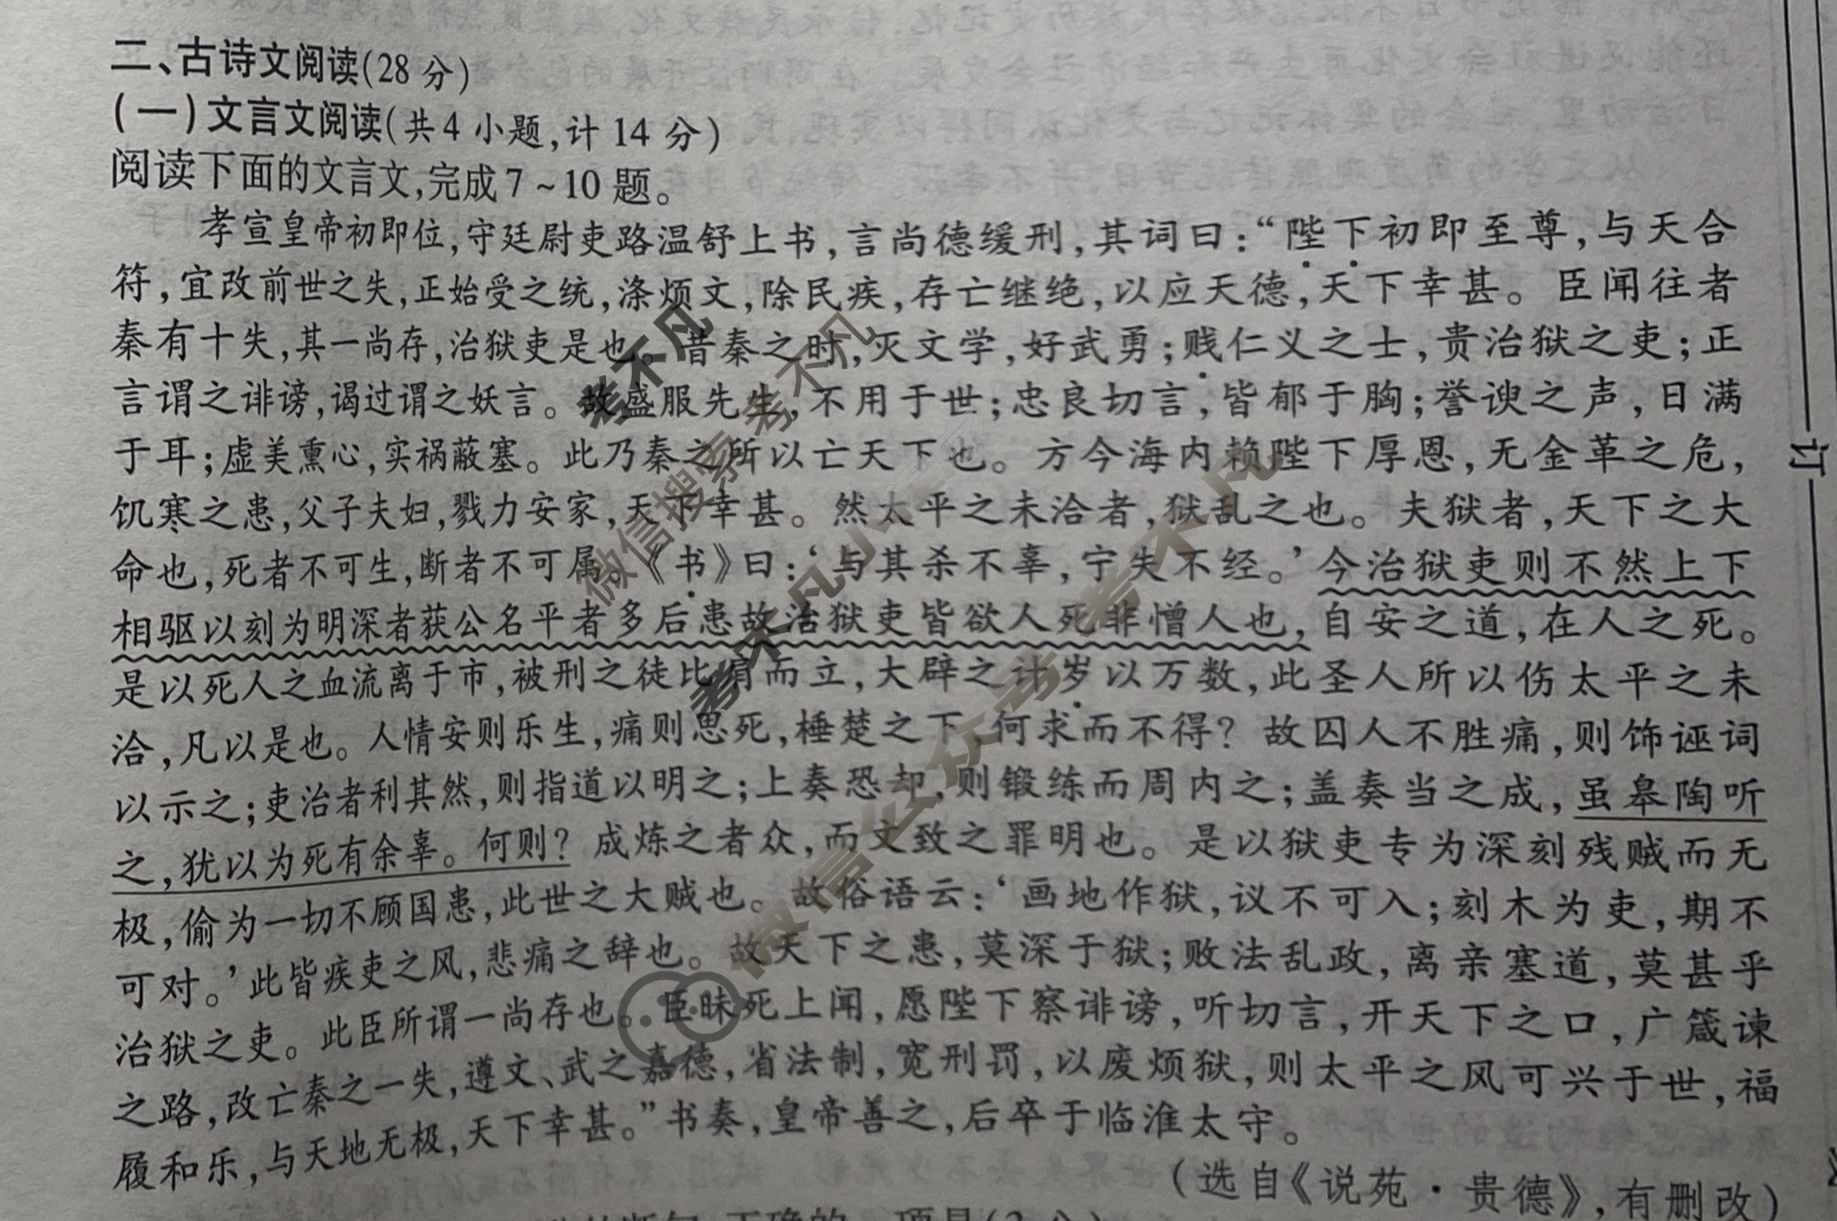 二、古诗文阅读(28分)
(一)文言文阅读(共4小题,计14分)
阅读下面的文言文,完成7~10题。
孝宣皇帝初即位,守廷尉吏路温舒上书,言尚德缓刑,其词曰:“陛下初即至尊,与天合
符,宜改前世之失,正始受之统,涤烦文,除民疾,存亡继绝,以应天德,天下幸甚。臣闻往者
秦有十失,其一尚存,治狱吏是也。昔秦之时,灭文学,好武勇;贱仁义之士,贵治狱之吏;正
言谓之诽谤,谒过谓之妖言。故盛服先生,不用于世;忠良切言,皆郁于胸;誉谀之声,日满
于耳;虚美熏心,实祸蔽塞。此乃秦之所以亡天下也。方今海内赖陛下厚恩,无金革之危,
饥寒之患,父子夫妇,戮力安家,天下幸甚。然太平之未洽者,狱乱之也。夫狱者,天下之大
命也,死者不可生,断者不可属。《书》曰:‘与其杀不辜,宁失不经。’今治狱吏则不然上下
相驱以刻为明深者获公名平者多后患故治狱吏皆欲人死非憎人也,自安之道,在人之死。
是以死人之血流离于市,被刑之徒比肩而立,大辟之计岁以万数,此圣人所以伤太平之未
洽,凡以是也。人情安则乐生,痛则思死,棰楚之下,何求而不得?故囚人不胜痛,则饰诬词
以示之;吏治者利其然,则指道以明之;上奏恐却,则锻练而周内之;盖奏当之成,虽皋陶听
之,犹以为死有余辜。何则?成炼之者众,而文致之罪明也。是以狱吏专为深刻残贼而无
极,偷为一切不顾国患,此世之大贼也。故俗语云:‘画地作狱,议不可入;刻木为吏,期不
可对。’此皆疾吏之风,悲痛之辞也。故天下之患,莫深于狱;败法乱政,离亲塞道,莫甚乎
治狱之吏。此臣所谓一尚存也。臣昧死上闻,愿陛下察诽谤,听切言,开天下之口,广箴谏
之路,改亡秦之一失,遵文、武之嘉德,省法制,宽刑罚,以废烦狱,则太平之风可兴于世,福
履和乐,与天地无极,天下幸甚。”书奏,皇帝善之,后卒于临淮太守。
(选自《说苑·贵德》,有删改)
订
微信搜索 考不凡
考不凡
微信公众号 考不凡